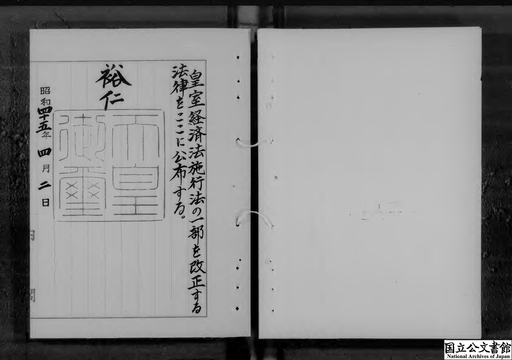 皇室経済法施行法の一部を改正する
法律をここに公布する。
裕仁
天皇
御璽
昭和四十五年四月二日
国立公文書館
National Archives of Japan